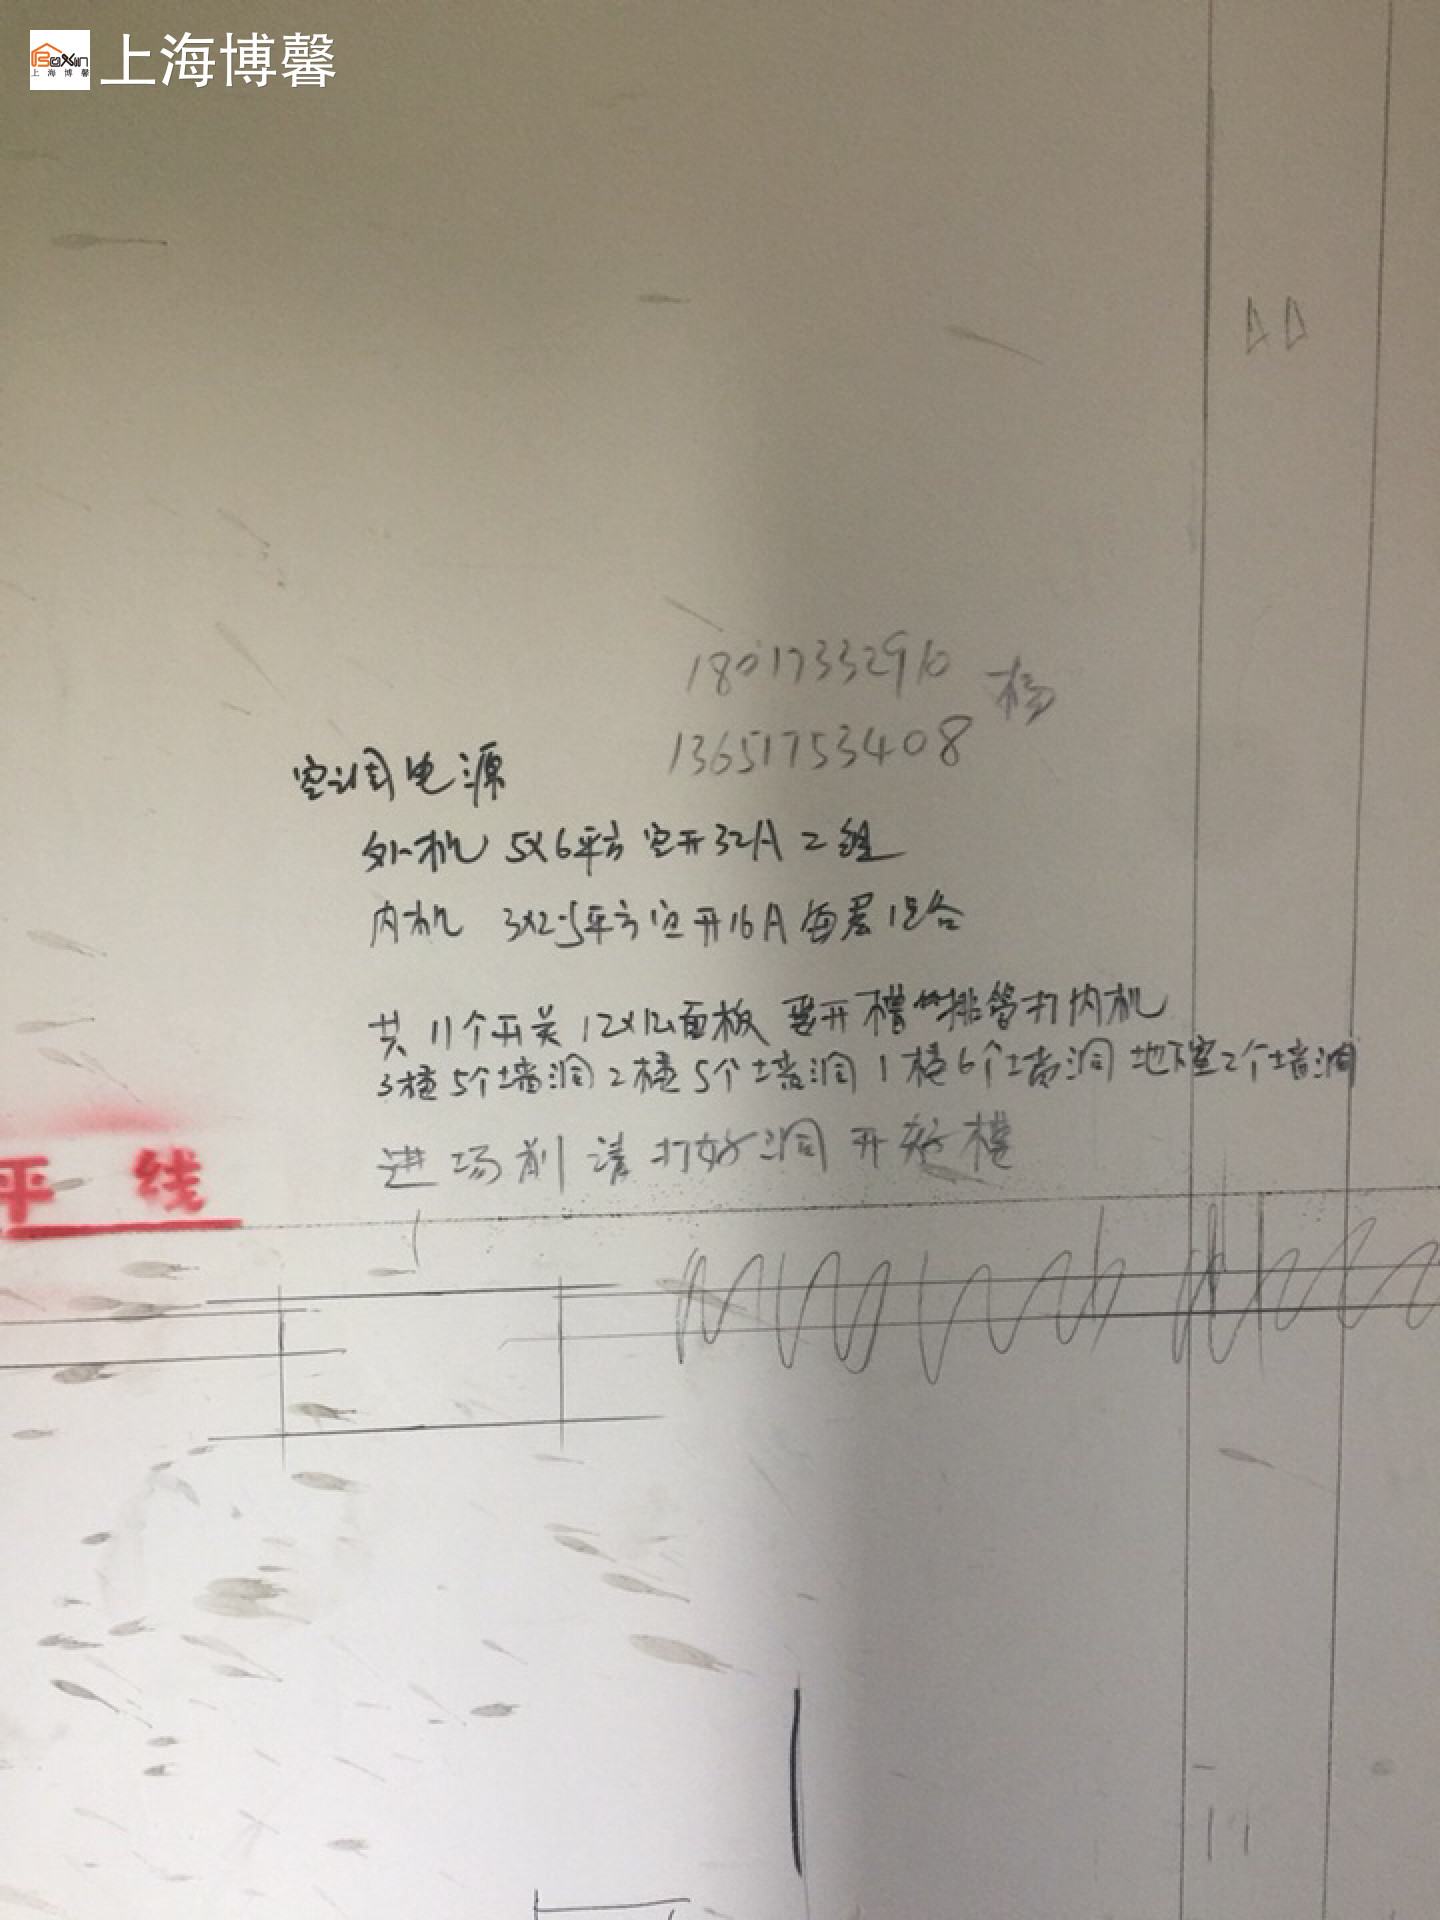 Boxin
上海博馨
上海博馨
18017332910
杨
13651753408
空调电源
外机 5x6平方 空开32A 2组
内机 3x2.5平方 空开16A 每层1组
共11个开关 12x12面板 要开槽 排管打内机
3楼5个墙洞 2楼5个墙洞 1楼6个墙洞 地下室2个墙洞
进场前请打好洞 开好槽
平 线